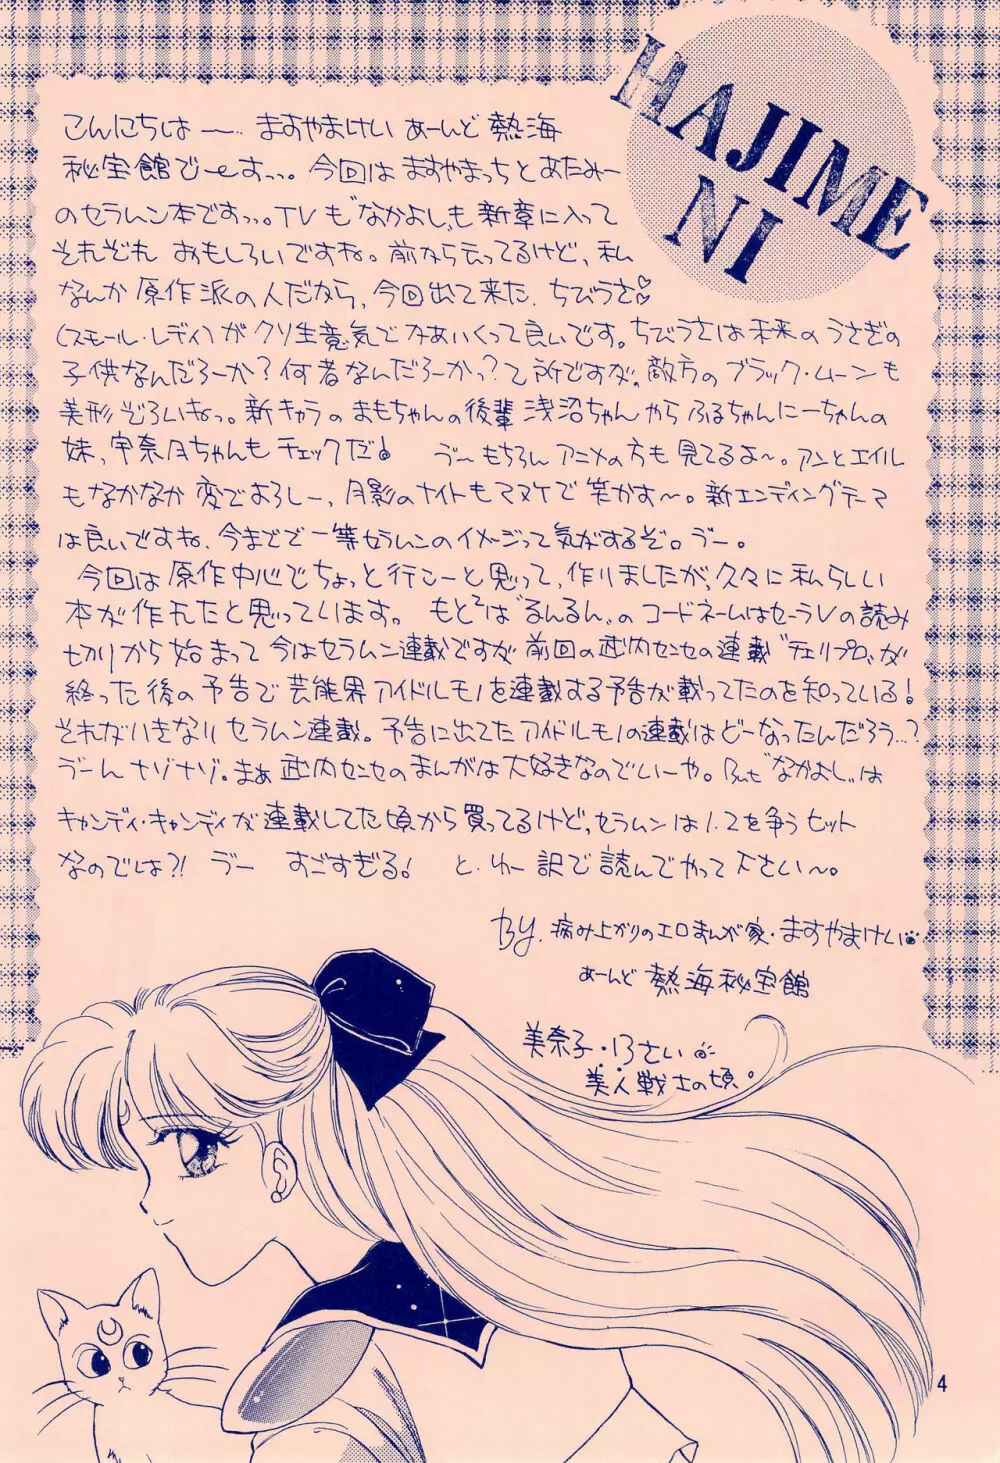 HAJIME
NI
こんにちは〜… ますやまけい あーんど 熱海
秘宝館でーすっっ。今回は ますやまっちと あたみー
のセラムン本ですっっ。TVも“なかよし”も 新章に入って
それぞれ おもしろいですね。前から云ってるけど、私
なんか 原作派の人だから、今回出て来た、ちびうさ♡
(スモール・レディ)が クソ生意気で かあいくって良いです。ちびうさは 未来の うさぎの
子供なんだろーか？何者なんだろーかっ？て所ですが。敵方の ブラック・ムーンも
美形ぞろいねっ。新キャラの まもちゃんの後輩 浅沼ちゃん やら ふるちゃんにーちゃんの
妹、宇奈月ちゃんも チェックだ！ ゔー もちろん アニメの方も 見てるよ〜。アンとエイル
もなかなか 変でよろしー、月影のナイトもマヌケで 笑かす〜。新エンディングテーマ
は良いですね、今までで 一等セラムンのイメージって気がするぞ。ゔー。
今回は 原作中心でちょっと行こーと思って、作りましたが、久々に私らしい
本が作れたと思っています。 もとそは“るんるん”の コードネームはセーラVの読み
切りから始まって 今はセラムン連載ですが 前回の武内センセの連載“チェリプロ”が
終った後の予告で 芸能界アイドルモノを連載する予告が載ってたのを知っている！
それがいきなり セラムン連載。予告に出てた アイドルモノの連載はどーなったんだろう…？
ゔーん ナゾナゾ。まぁ 武内センセのまんがは大好きなのでいーや。But“なかよし”は
キャンディ・キャンディが連載してた頃から買ってるけど、セラムンは1.2を争うヒット
なのでは？！ ゔー すごすぎる！ と・ゆー 訳で読んでやって下さい〜。
By. 病み上がりのエロまんが家・ますやまけい
あーんど 熱海秘宝館
美奈子・13さい
美人戦士の頃。
4